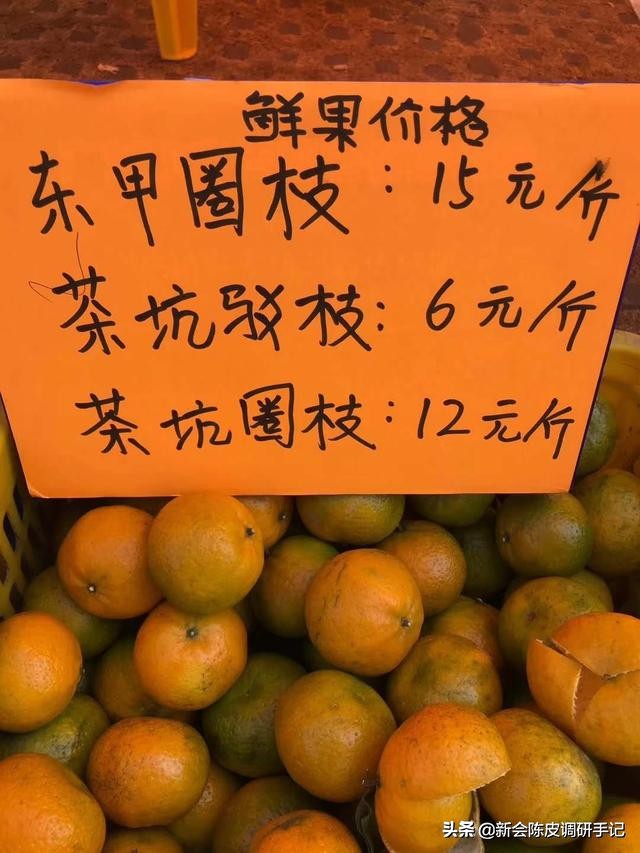 鲜果价格
东甲圈枝：15元斤
茶坑驳枝：6元斤
茶坑圈枝：12元斤
头条 @新会陈皮调研手记